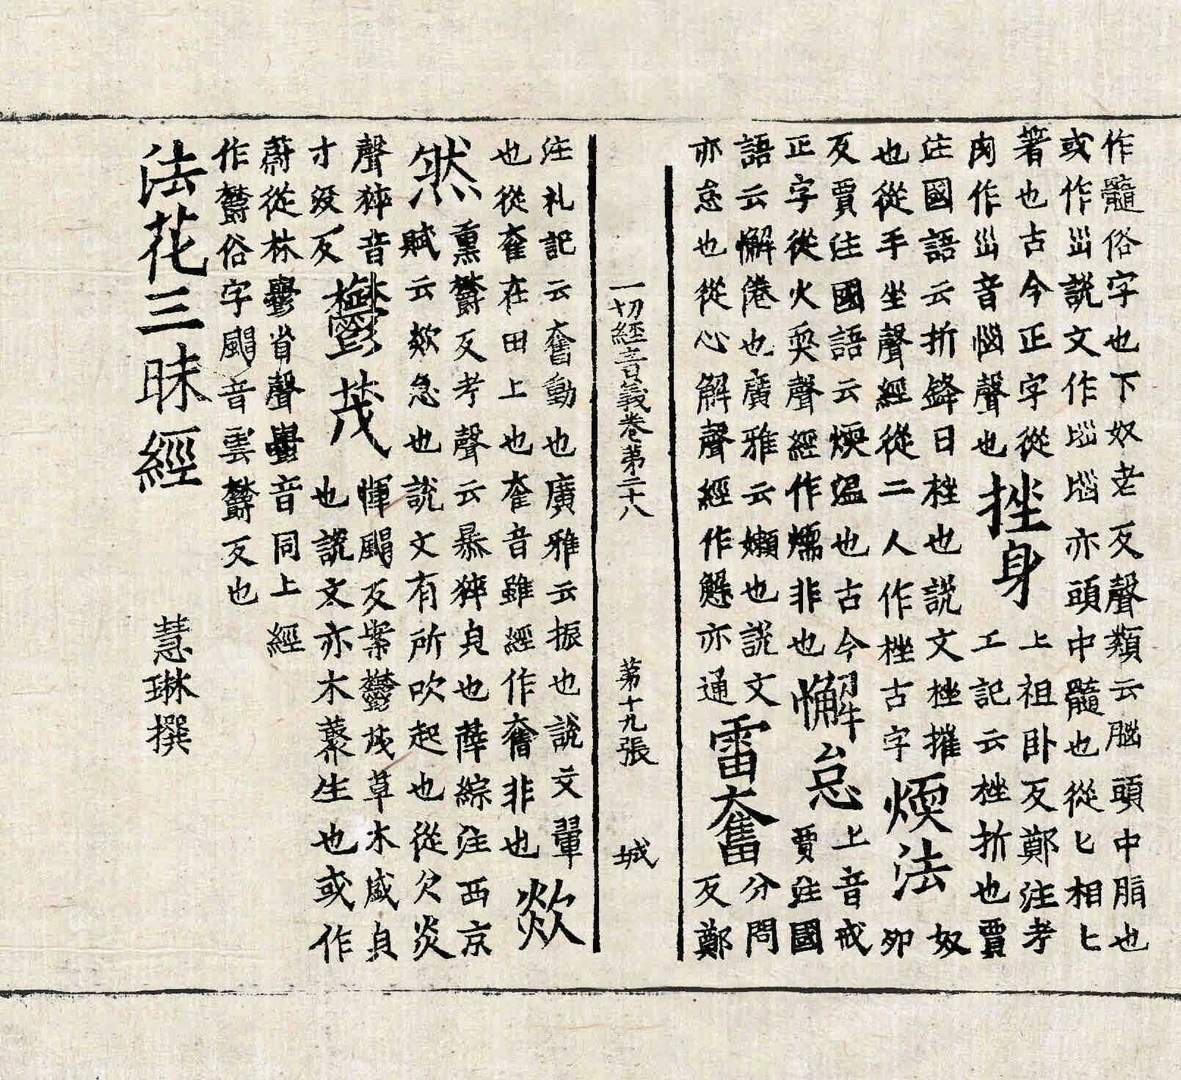 作髓俗字也下奴老反聲類云腦頭中脂也
或作𡿺説文作𡿺𡿺亦頭中髓也從匕相匕
著也古今正字從
肉作𡿺音惱聲也
挫身
上祖卧反鄭注考
工記云挫折也賈
注國語云折鋒曰挫也説文挫摧
也從手坐聲經從二人作挫古字
煗法
奴
卵
反賈注國語云煗温也古今
正字從火耎聲經作燸非也
懈怠
上音戒
賈注國
語云懈倦也廣雅云嬾也説文
亦怠也從心解聲經作懈亦通
雷奮
分問
反鄭
一切經音義卷第二十八 第十九張 城
注礼記云奮動也廣雅云振也説文翬
也從奞在田上也奞音雖經作奮非也
歘
然
熏欝反考聲云暴猝皃也薛綜注西京
賦云欻急也説文有所吹起也從欠炎
聲猝音
才沒反
欝茂
惲颶反案欝茂草木盛皃
也説文亦木藂生也或作
蔚從林省聲音同上經
作欝俗字颶音雲欝反也
法花三昧經 慧琳撰